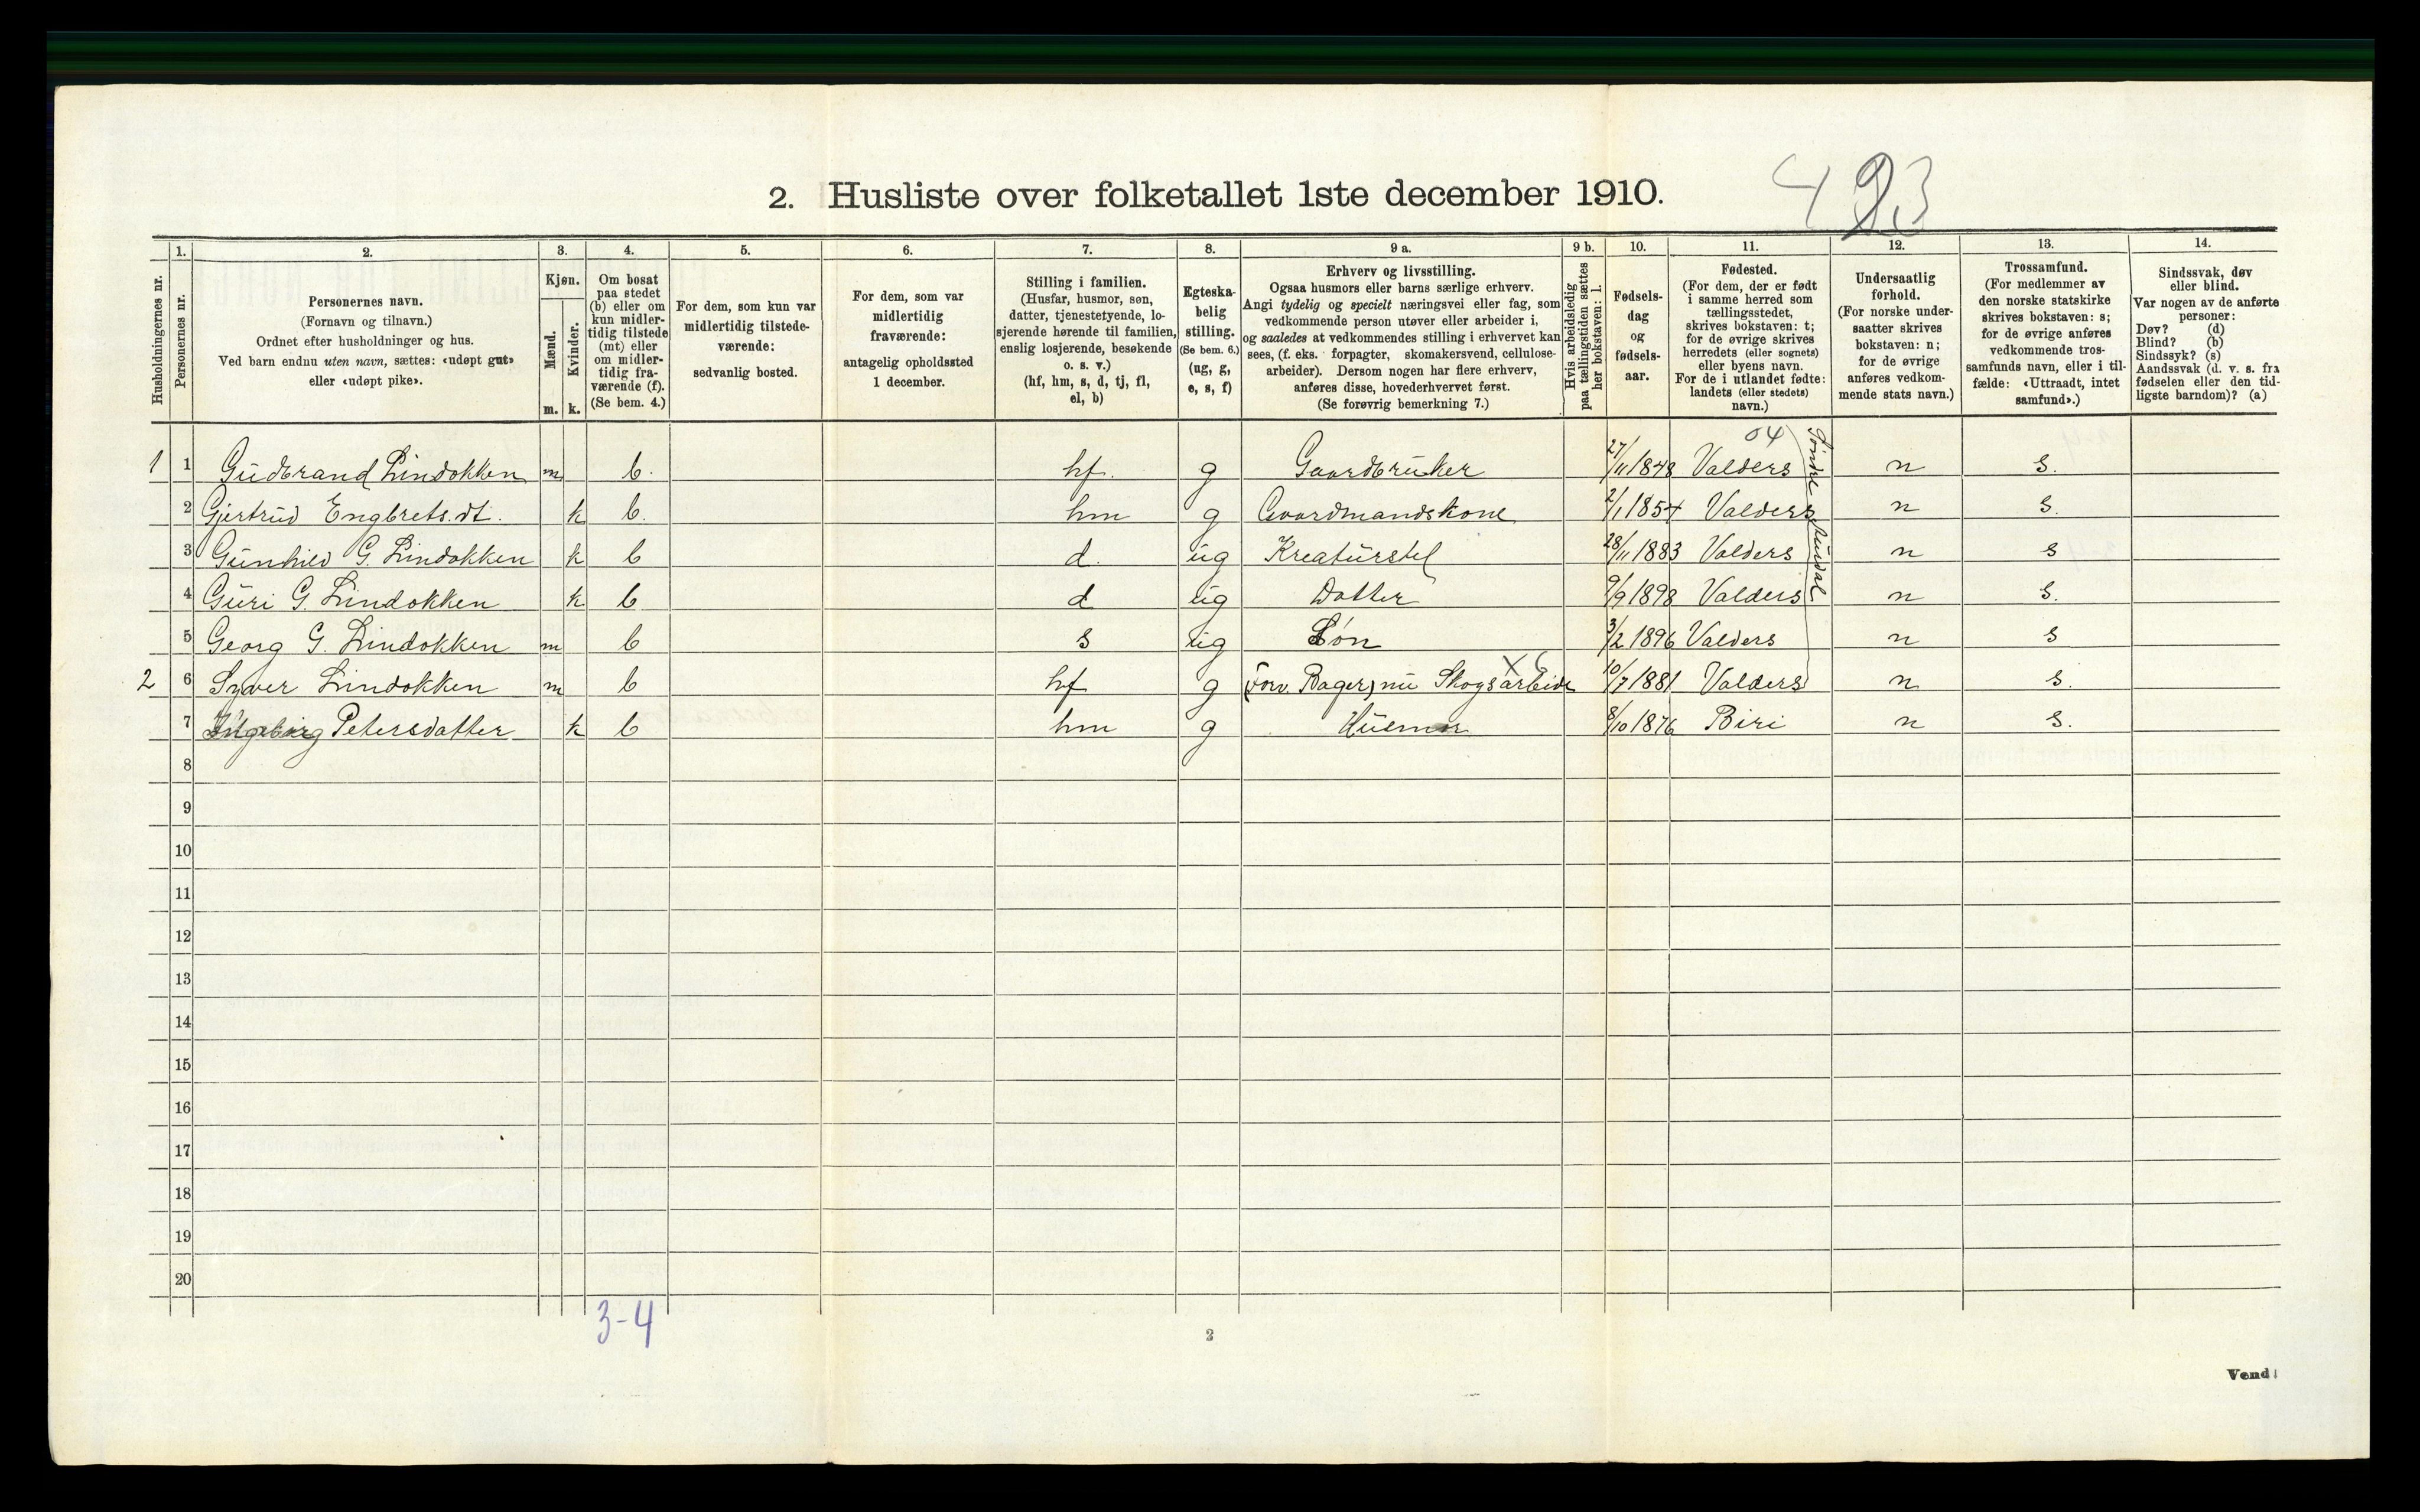 423
2. Husliste over folketallet 1ste december 1910.
Husholdningernes nr.
1.
Personernes nr.
2.
Personernes navn.
(Fornavn og tilnavn.)
Ordnet efter husholdninger og hus.
Ved barn endnu uten navn, sættes: «udøpt gut»
eller «udøpt pike».
3.
Kjøn.
Mænd.
Kvinder.
m. k.
4.
Om bosat
paa stedet
(b) eller om
kun midler-
tidig tilstede
(mt) eller
om midler-
tidig fra-
værende (f).
(Se bem. 4.)
5.
For dem, som kun var
midlertidig tilstede-
værende:
sedvanlig bosted.
6.
For dem, som var
midlertidig
fraværende:
antagelig opholdssted
1 december.
7.
Stilling i familien.
(Husfar, husmor, søn,
datter, tjenestetyende, lo-
sjerende hørende til familien,
enslig losjerende, besøkende
o. s. v.)
(hf, hm, s, d, tj, fl,
el, b)
8.
Egteska-
belig
stilling.
(Se bem. 6.)
(ug, g,
e, s, f)
9 a.
Erhverv og livsstilling.
Ogsaa husmors eller barns særlige erhverv.
Angi tydelig og specielt næringsvei eller fag, som
vedkommende person utøver eller arbeider i,
og saaledes at vedkommendes stilling i erhvervet kan
sees, (f. eks. forpagter, skomakersvend, cellulose-
arbeider). Dersom nogen har flere erhverv,
anføres disse, hovederhvervet først.
(Se forøvrig bemerkning 7.)
9 b.
Hvis arbeidsledig
paa tællingstiden sættes
her bokstaven: l.
10.
Fødsels-
dag
og
fødsels-
aar.
11.
Fødested.
(For dem, der er født
i samme herred som
tællingsstedet,
skrives bokstaven: t;
for de øvrige skrives
herredets (eller sognets)
eller byens navn.
For de i utlandet fødte:
landets (eller stedets)
navn.)
12.
Undersaatlig
forhold.
(For norske under-
saatter skrives
bokstaven: n;
for de øvrige
anføres vedkom-
mende stats navn.)
13.
Trossamfund.
(For medlemmer av
den norske statskirke
skrives bokstaven: s;
for de øvrige anføres
vedkommende tros-
samfunds navn, eller i til-
fælde: «Uttraadt, intet
samfund».)
14.
Sindssvak, døv
eller blind.
Var nogen av de anførte
personer:
Døv? (d)
Blind? (b)
Sindssyk? (s)
Aandssvak (d. v. s. fra
fødselen eller den tid-
ligste barndom)? (a)
04
1 1 Gudbrand Lindokken m b. hf. g Gaardbruker 27/11 1848 Valders n s.
2 Gjertrud Engbrets.dt. k b. hm g Gaardmandskone 2/1 1854 Valders n s.
3 Gunhild G. Lindokken k b d. ug Kreaturstel 28/11 1883 Valders n s
4 Guri G. Lindokken k b d ug Datter 9/9 1898 Valders n s.
5 Georg G. Lindokken m b s ug Søn 3/2 1896 Valders n s
2 6 Syver Lindokken m b hf g (Forv. Bager) nu Skogsarbeide 10/7 1881 Valders n s.
7 Ingeborg Petersdatter k b hm g Husmor 8/10 1876 Biri n s.
Søndre Aurdal
8
9
10
11
12
13
14
15
16
17
18
19
20
3-4
2
Vend!